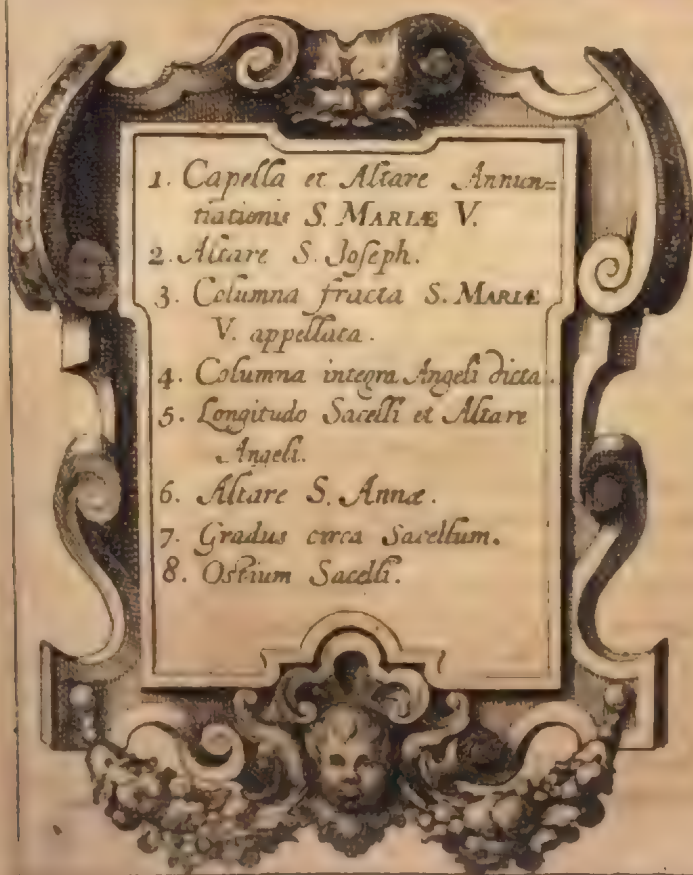 1. Capella et Altare Annun=
tiationis S. MARIÆ V.
2. Altare S. Joseph.
3. Columna fracta S. MARIÆ
V. appellata.
4. Columna integra Angeli dicta.
5. Longitudo Sacelli et Altare
Angeli.
6. Altare S. Annæ.
7. Gradus circa Sacellum.
8. Ostium Sacelli.